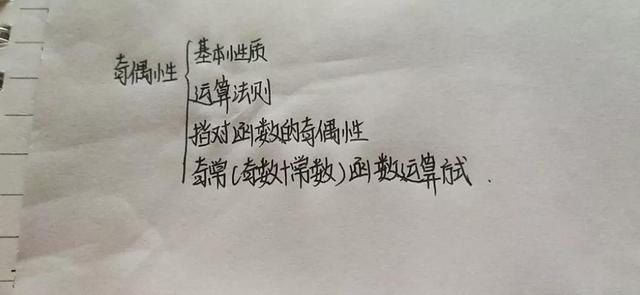 奇偶性
基本性质
运算法则
指对函数的奇偶性
奇常(奇数+常数)函数运算方式.